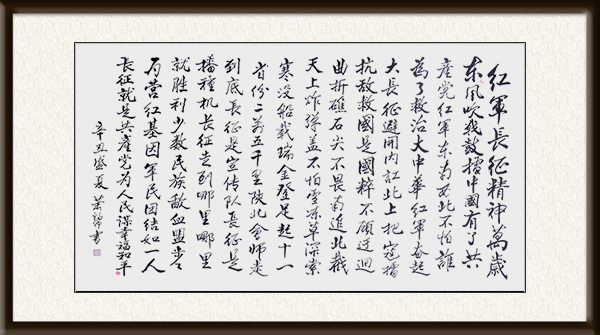 红軍長征精神萬歲
东风吹我鼓擂中國有了共
產党红軍东南西北不怕誰
為了救治大中華红軍奋起
大長征避開内訌北上把寇擋
抗敌救國是國粹不顾迂迴
曲折礁石尖不畏南追北截
天上炸弹盖不怕雪冻草深索
寒没船载瑞金登足起十一
省份二萬五千里陕北会师走
到底長征是宣传队長征是
播種机长征走到哪里哪里
就胜利少数民族歃血盟步々
为营红基因军民团结如一人
長征就是共產党为人民谋幸福和平
辛丑盛夏
書